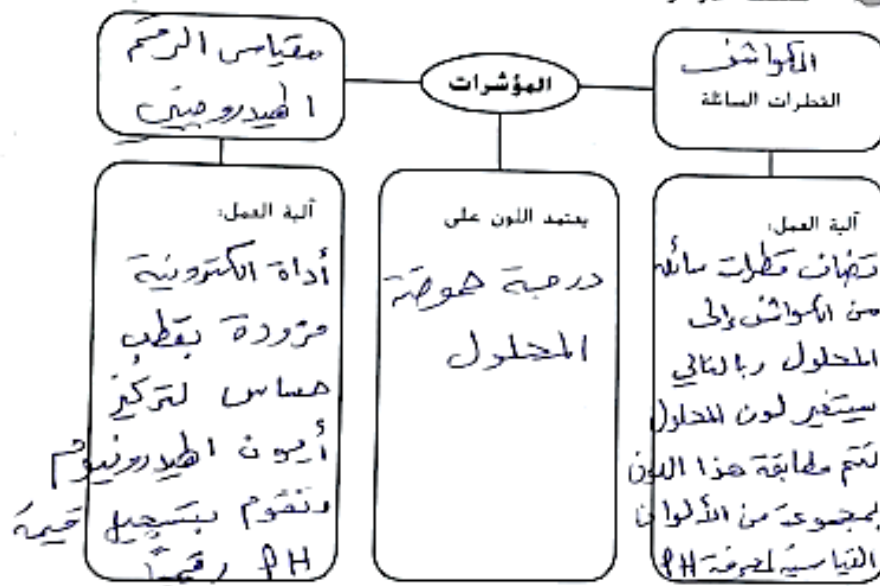 المؤشرات
الكواشف
القطرات السائلة
آلية العمل:
تضاف قطرات سائلة
من الكواشف إلى
المحلول وبالتالي
سيتغير لون المحلول
لتتم مطابقة هذا اللون
بمجموعة من الألوان
القياسية لمعرفة PH
يعتمد اللون على
درجة حموضة
المحلول
مقياس الرقم
الهيدروجيني
آلية العمل:
أداة الكترونية
مزودة بقطب
حساس لتركيز
أيون الهيدرونيوم
وتقوم بتسجيل قيمة
PH رقمياً